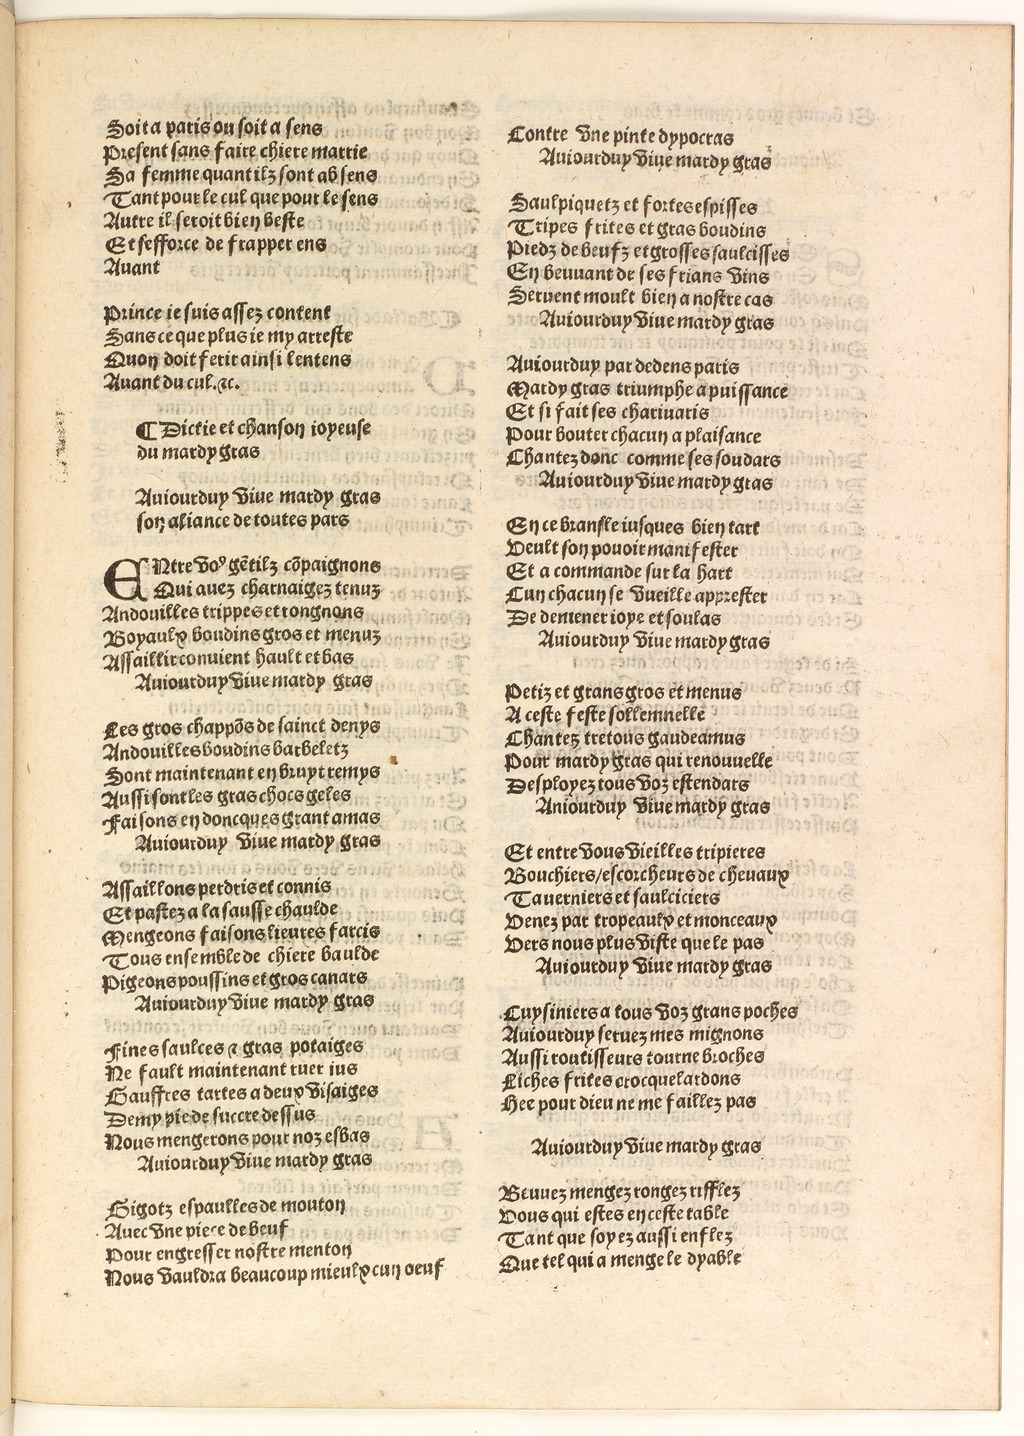 Soit a paris ou soit a sens
Present sans faire chiere marrie
Sa femme quant ilz sont absens
Tant pour le cul que pour le sens
Autre il seroit bien beste
Et sefforce de frapper ens
Auant
Prince ie suis assez content
Sans ce que plus ie my arreste
Quon doit ferir ainsi lentens
Auant du cul.⁊c.
¶ Dictie et chanson ioyeuse
du mardy gras
Auiourduy viue mardy gras
son aliance de toutes pars
ENtre voꝰ gētilz cōpaignons
Qui auez charnaigez tenuz
Andouilles trippes et rongnons
Boyaulx boudins gros et menuz
Assaillir conuient hault et bas
Auiourduy viue mardy gras
Les gros chappōs de sainct denys
Andouilles boudins barbeletz
Sont maintenant en bruyt remys
Aussi sont les gras chocs geles
Faisons en doncques grant amas
Auiourduy viue mardy gras
Assaillons perdris et connis
Et pastez a la sausse chaulde
Mengeons faisons lieures farcis
Tous ensemble de chiere baulde
Pigeons poussins et gros canars
Auiourduy viue mardy gras
Fines saulces ⁊ gras potaiges
Ne fault maintenant ruer ius
Gauffres tartes a deux visaiges
Demy pie de succre dessus
Nous mengerons pour noz esbas
Auiourduy viue mardy gras
Gigotz espaulles de mouton
Auec vne piece de beuf
Pour engresser nostre menton
Nous vauldra beaucoup mieulx cun oeuf
Contre vne pinte dypocras
Auiourduy viue mardy gras
Saulpiquetz et fortes espisses
Tripes frites et gras boudins
Piedz de beufz et grosses saulcisses
En beuuant de ses frians vins
Seruent moult bien a nostre cas
Auiourduy viue mardy gras
Auiourduy par dedens paris
Mardy gras triumphe a puissance
Et si fait ses chariuaris
Pour bouter chacun a plaisance
Chantez donc comme ses soudars
Auiourduy viue mardy gras
En ce bransle iusques bien tart
Veult son pouoir manifester
Et a commande sur la hart
Cun chacun se vueille apprester
De demener ioye et soulas
Auiourduy viue mardy gras
Petiz et grans gros et menus
A ceste feste sollemnelle
Chantez tretous gaudeamus
Pour mardy gras qui renouuelle
Desployez tous voz estendars
Aniourduy viue mardy gras
Et entre vous vieilles tripieres
Bouchiers/escorcheurs de cheuaux
Tauerniers et saulciciers
Venez par tropeaulx et monceaux
Vers nous plus viste que le pas
Auiourduy viue mardy gras
Cuysiniers a tous voz grans poches
Auiourduy seruez mes mignons
Aussi routisseurs tourne broches
Liches frites crocquelardons
Hee pour dieu ne me faillez pas
Auiourduy viue mardy gras
Beuuez mengez rongez rifflez
Vous qui estes en ceste table
Tant que soyez aussi enflez
Que tel qui a menge le dyable